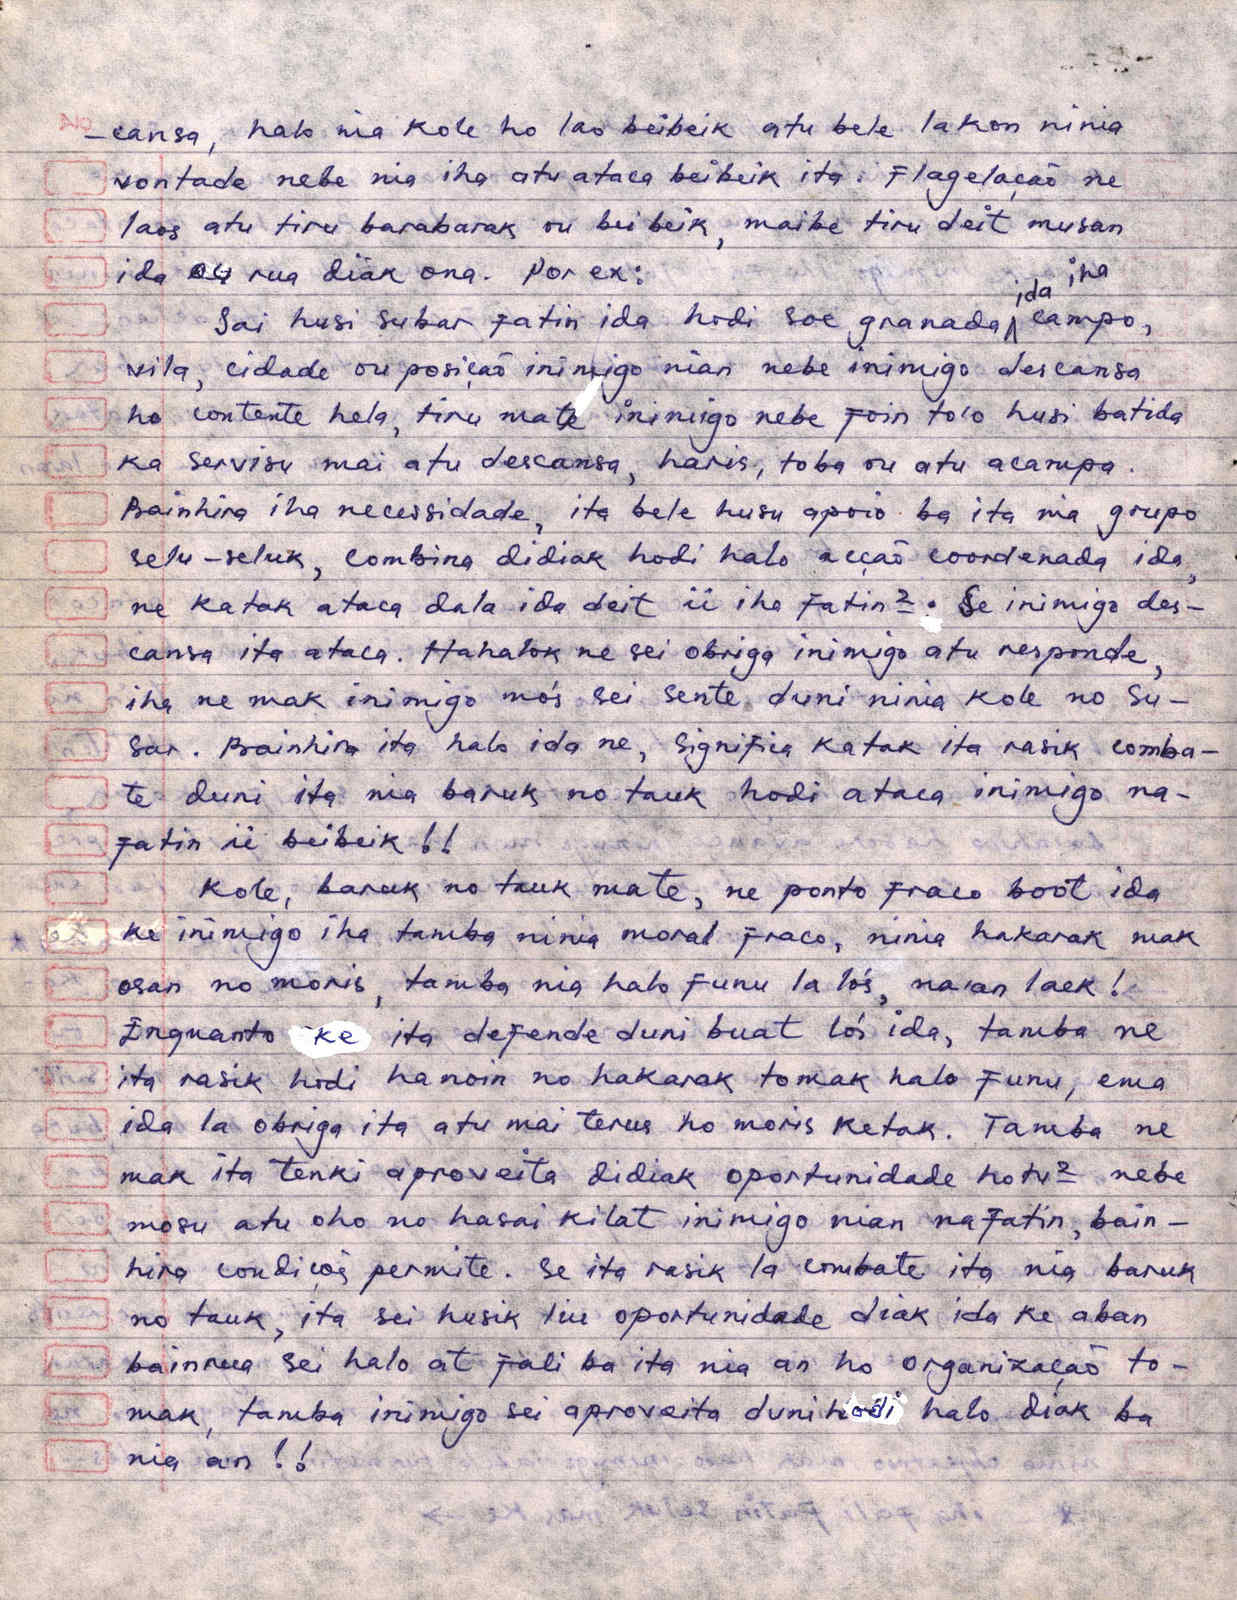 -cansa, halo nia kole ho lao beibeik atu bele lakon ninia
vontade nebe nia iha atu ataca beibeik ita. Flagelaçaõ ne
laos atu tiru barabarak ou beibeik, maibe tiru deit musan
ida ou rua diak ona. Por ex:
Sai husi subar fatin ida hodi soe granada ida iha campo,
vila, cidade ou posiçaõ inimigo nian nebe inimigo descansa
ho contente hela, tiru mate inimigo nebe foin tolo husi batida
ka servisu mai atu descansa, haris, toba ou atu acampa.
Bainhira iha necessidade, ita bele husu apoio ba ita nia grupo
selu-seluk, combina didiak hodi halo acçaõ coordenada ida,
ne katak ataca dala ida deit ii iha fatin 2. Se inimigo des-
cansa ita ataca. Hahalok ne sei obriga inimigo atu responde,
iha ne mak inimigo mós sei sente duni ninia kole no su-
sar. Bainhira ita halo ida ne, significa katak ita rasik comba-
te duni ita nia baruk no tauk hodi ataca inimigo na-
fatin ii beibeik!!
Kole, baruk no tauk mate, ne ponto fraco boot ida
ke inimigo iha tamba ninia moral fraco, ninia hakarak mak
osan no moris, tamba nia halo funu la lós, naran laek!
Enquanto ke ita defende duni buat lós ida, tamba ne
ita rasik hodi hanoin no hakarak tomak halo funu, ema
ida la obriga ita atu mai terus ho moris ketak. Tamba ne
mak ita tenki aproveita didiak oportunidade hotu 2 nebe
mosu atu oho no hasai kilat inimigo nian nafatin, bain-
hira condiçoẽs permite. Se ita rasik la combate ita nia baruk
no tauk, ita sei husik liu oportunidade diak ida ke aban
bainrua sei halo at fali ba ita nia an ho organizaçaõ to-
mak, tamba inimigo sei aproveita duni hodi halo diak ba
nia an!!